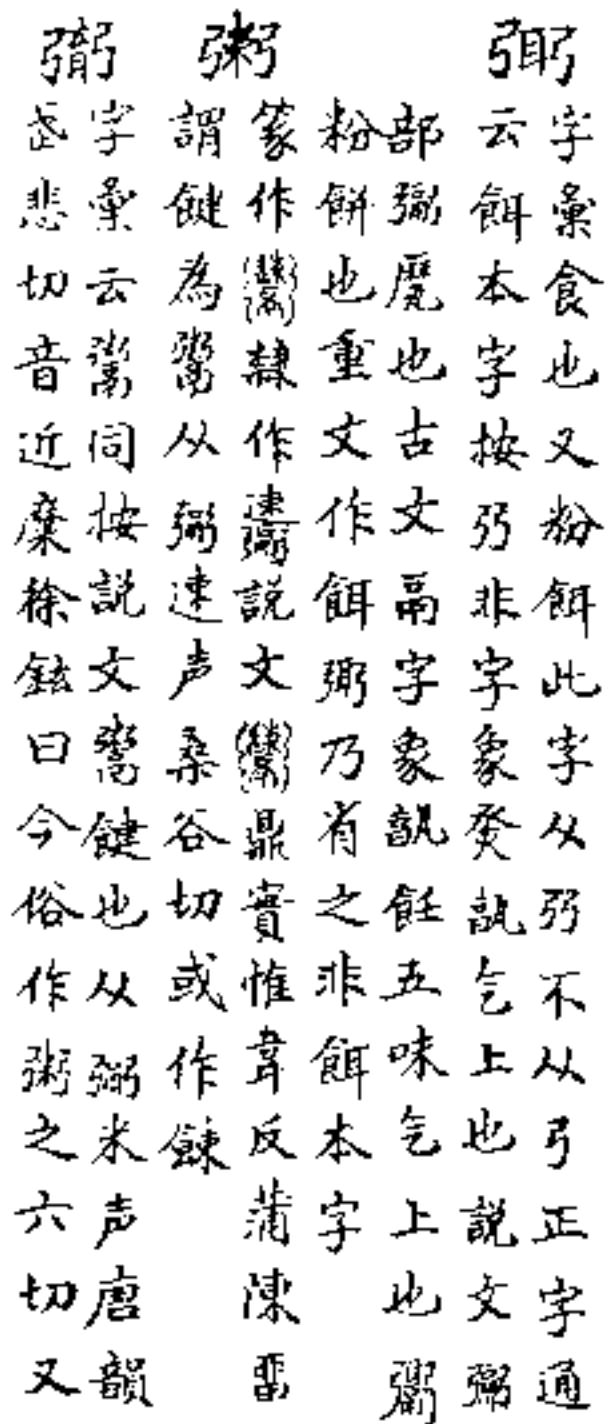 字彙食也又粉餌此字从弜不从弓正字通
云餌本字按弜非字象孰气上也説文
部也古文鬲字象孰飪五味气上也
粉餅也重文作餌乃省之非餌本字
篆作隸作説文鼎實惟葦及蒲陳畱
謂䭈為鬻从䰜速声桑谷切或作餗
字彙云鬻同按説文鬻䭈也从䰜米声唐韻
武悲切音近糜徐鉉曰今俗作粥之六切又